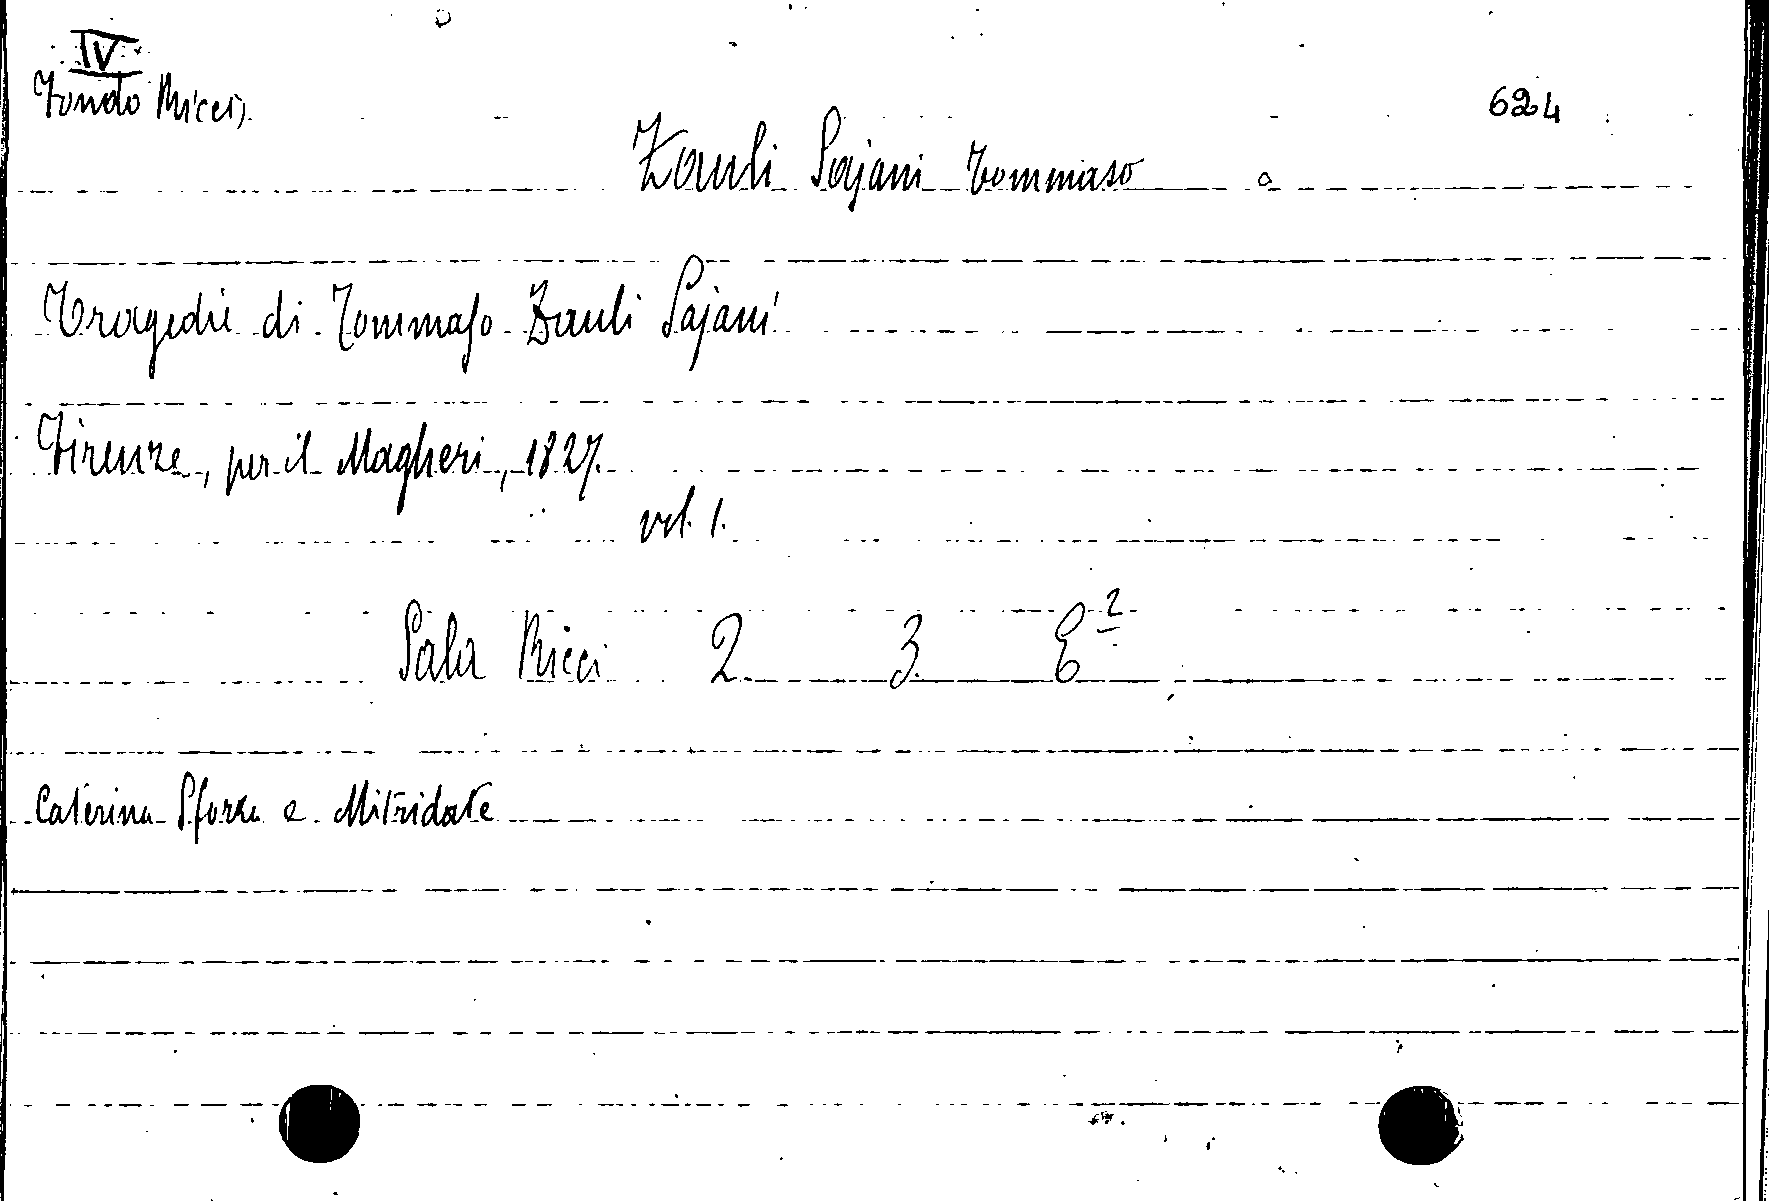 IV
Fondo Ricci
624
Zauli Sajani Tommaso
Tragedie di Tommaso Zauli Sajani
Firenze, per il Magheri, 1827.
vol. 1.
Sala Ricci 2 3 E²
Caterina Sforza e Mitridate